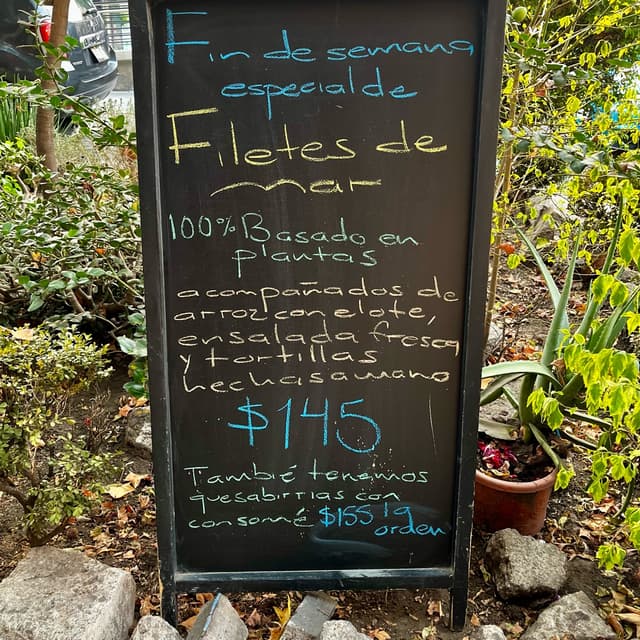 Fin de semana
especial de
Filetes de
mar
100% Basado en
plantas
acompañados de
arroz con elote,
ensalada fresca
y tortillas
hechas a mano
$145
También tenemos
quesabirrias con
consomé $155 la
orden